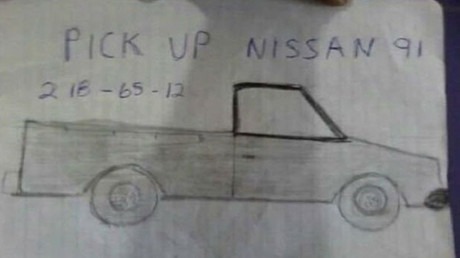 PICK UP NISSAN 91
218-65-12